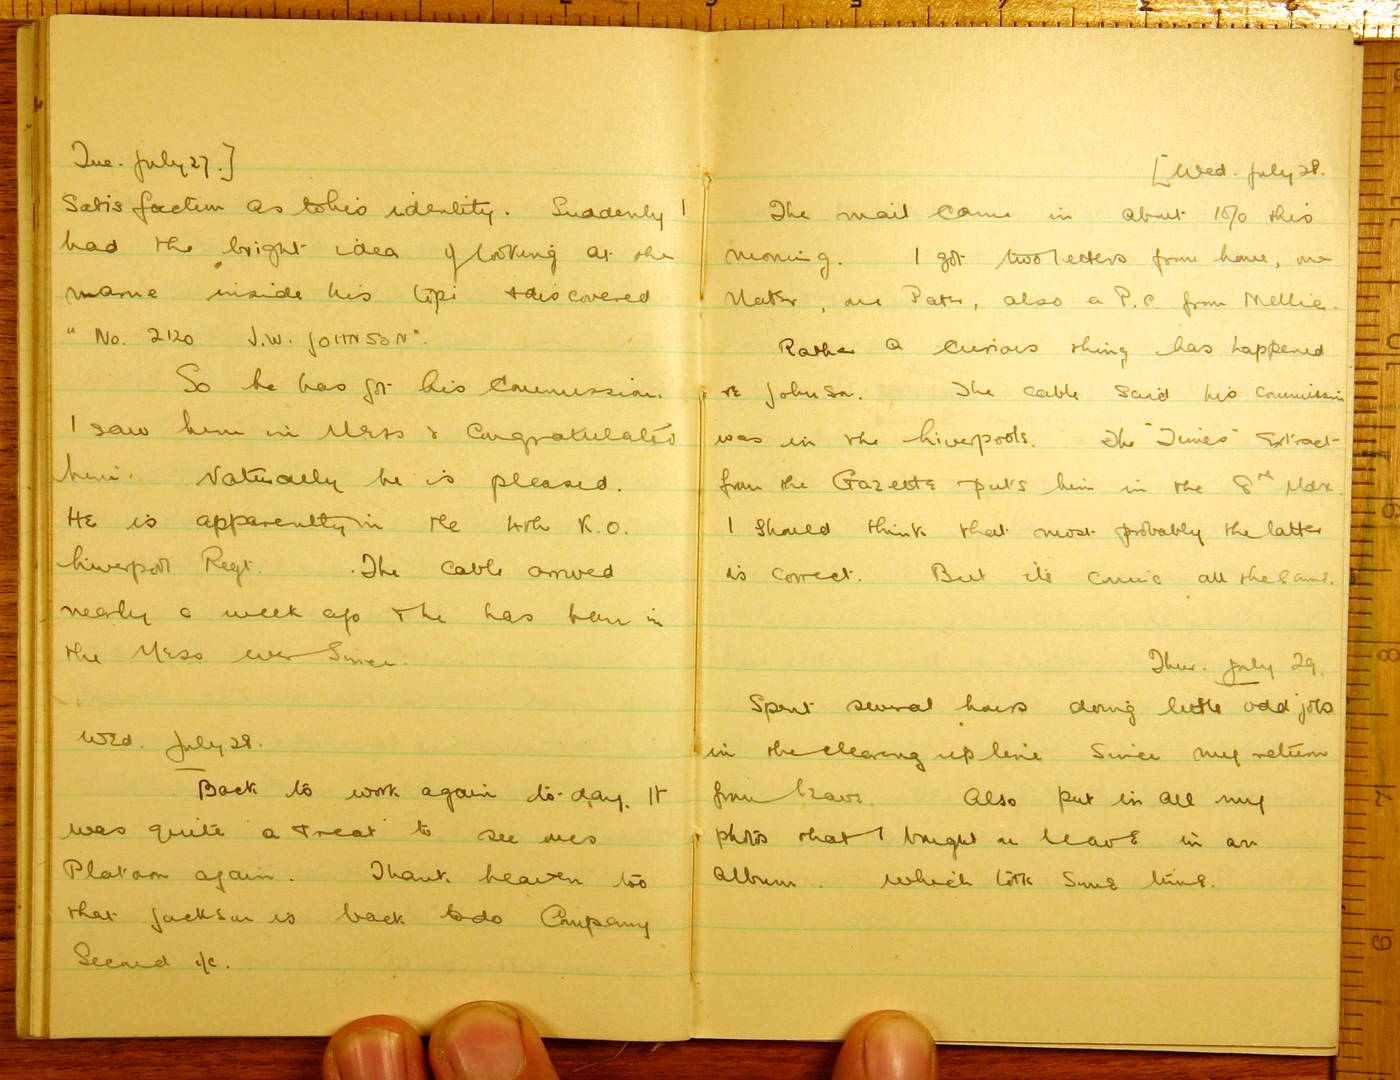 Tue. July 27.]
Satisfaction as to his identity. Suddenly I
had the bright idea of looking at the
name inside his topi & discovered
"No. 2120 J.W. JOHNSON".
So he has got his Commission.
I saw him in Mess & Congratulated
him. Naturally he is pleased.
He is apparently in the 4th K.O.
Liverpool Regt. The cable arrived
nearly a week ago & he has been in
the Mess ever Since.
Wed. July 28.
Back to work again to-day. It
was quite a treat to see
Platoon again. Thank heaven too
that Jackson is back to do Company
Second i/c.
[Wed. July 28.
The mail came in about 10/0 this
morning. I got two letters from home, one
Mater, one Pater, also a P.C. from Nellie.
Rather a curious thing has happened
re Johnson. The cable said his commission
was in the Liverpools. The "Times" Extract
from the Gazette puts him in the 8th Mdx.
I should think that most probably the latter
is correct. But it's comic all the same.
Thur. July 29.
Spent several hours doing little odd jobs
in the clearing up line Since my return
from leave. Also put in all my
photos that I bought on leave in an
album. which took Some time.